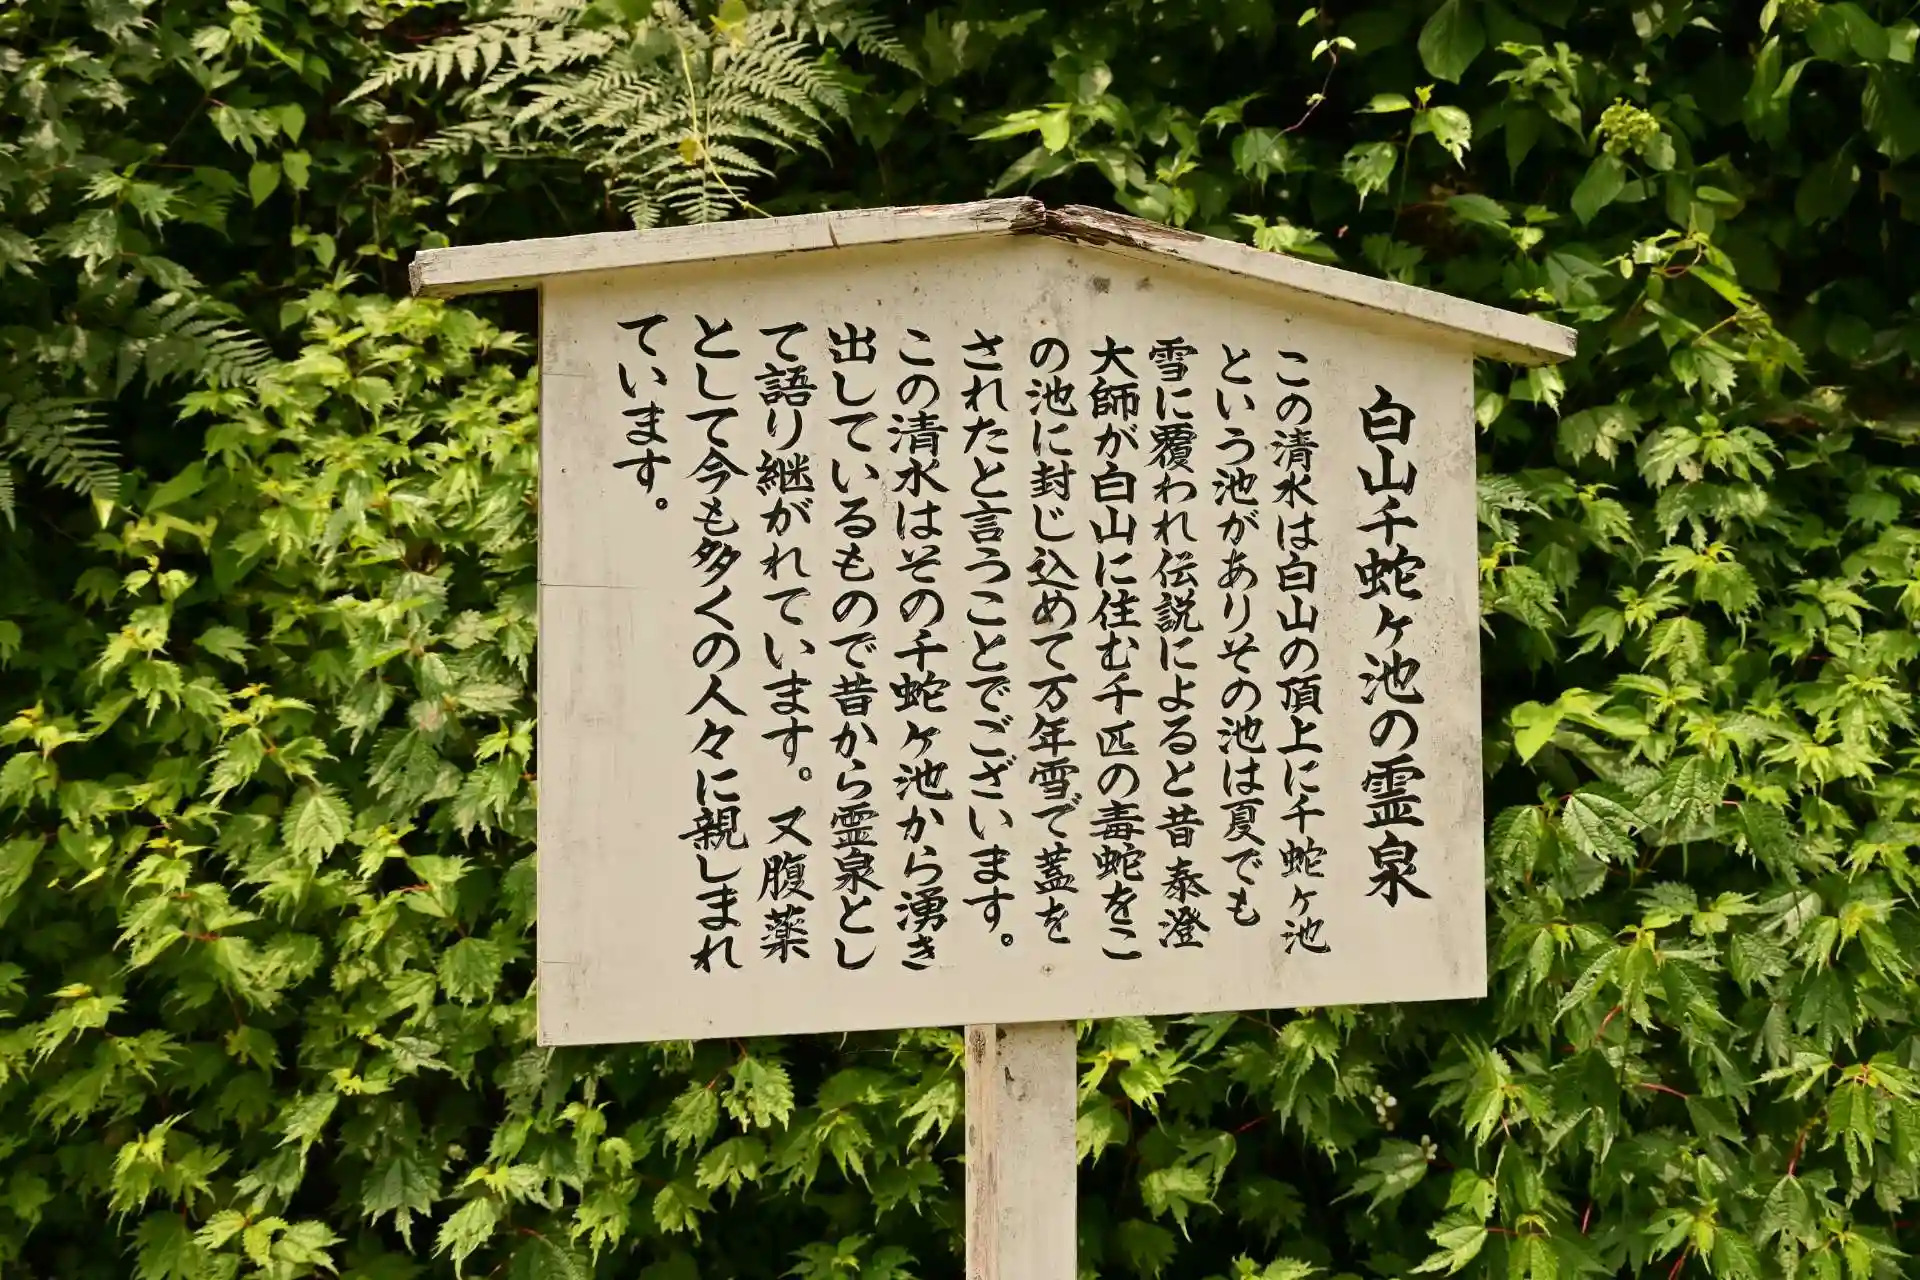 白山千蛇ヶ池の霊泉
この清水は白山の頂上に千蛇ヶ池
という池がありその池は夏でも
雪に覆われ伝説によると昔泰澄
大師が白山に住む千匹の毒蛇をこ
の池に封じ込めて万年雪で蓋を
されたと言うことでございます。
この清水はその千蛇ヶ池から湧き
出しているもので昔から霊泉とし
て語り継がれています。又腹薬
として今も多くの人々に親しまれ
ています。